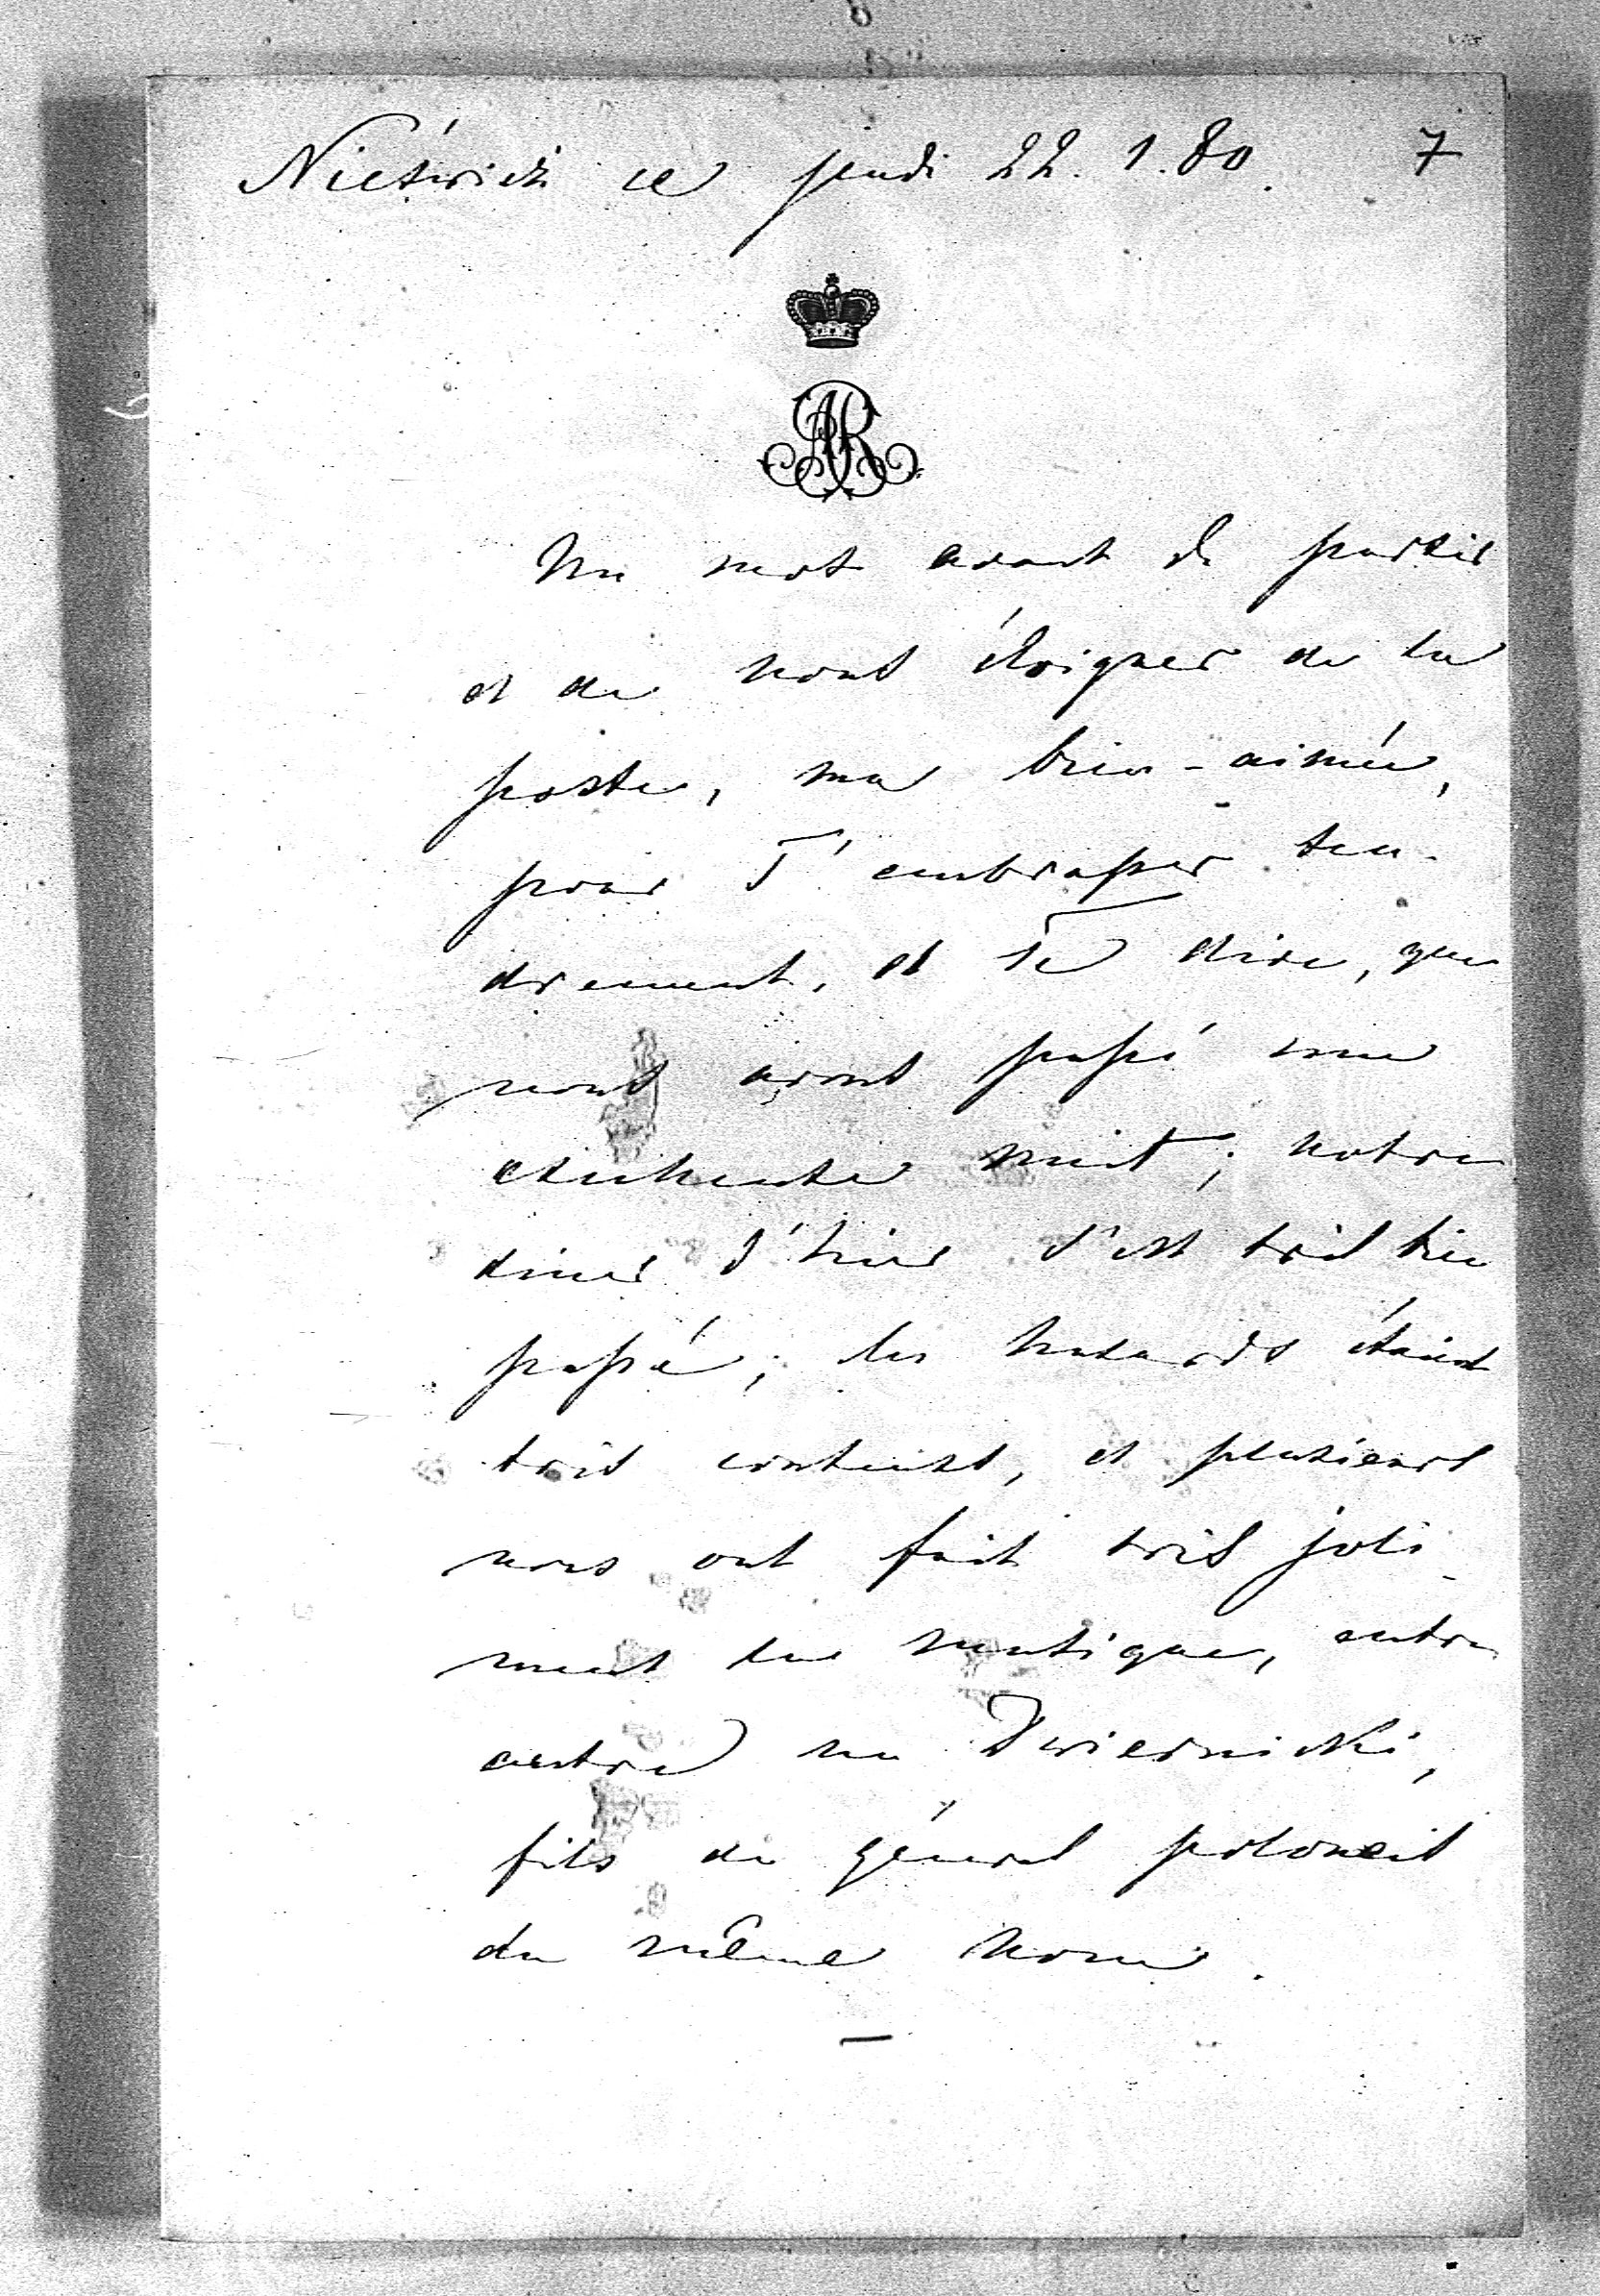 Nieświeź ce jeudi 22. 1. 80. 7
AR
Un mot avant de partir
et de nous éloigner de la
poste, ma bien-aimée,
pour T'embrasser ten-
drement, et Te dire, que
nous avons passé une
excellente nuit; notre
diner d'hier s'est très bien
passé; les étaient
très contents, et plusieurs
nous ont fait très joli-
ment de la musique, entre
autre un Dwiernicki,
fils du général polonais
du même nom.